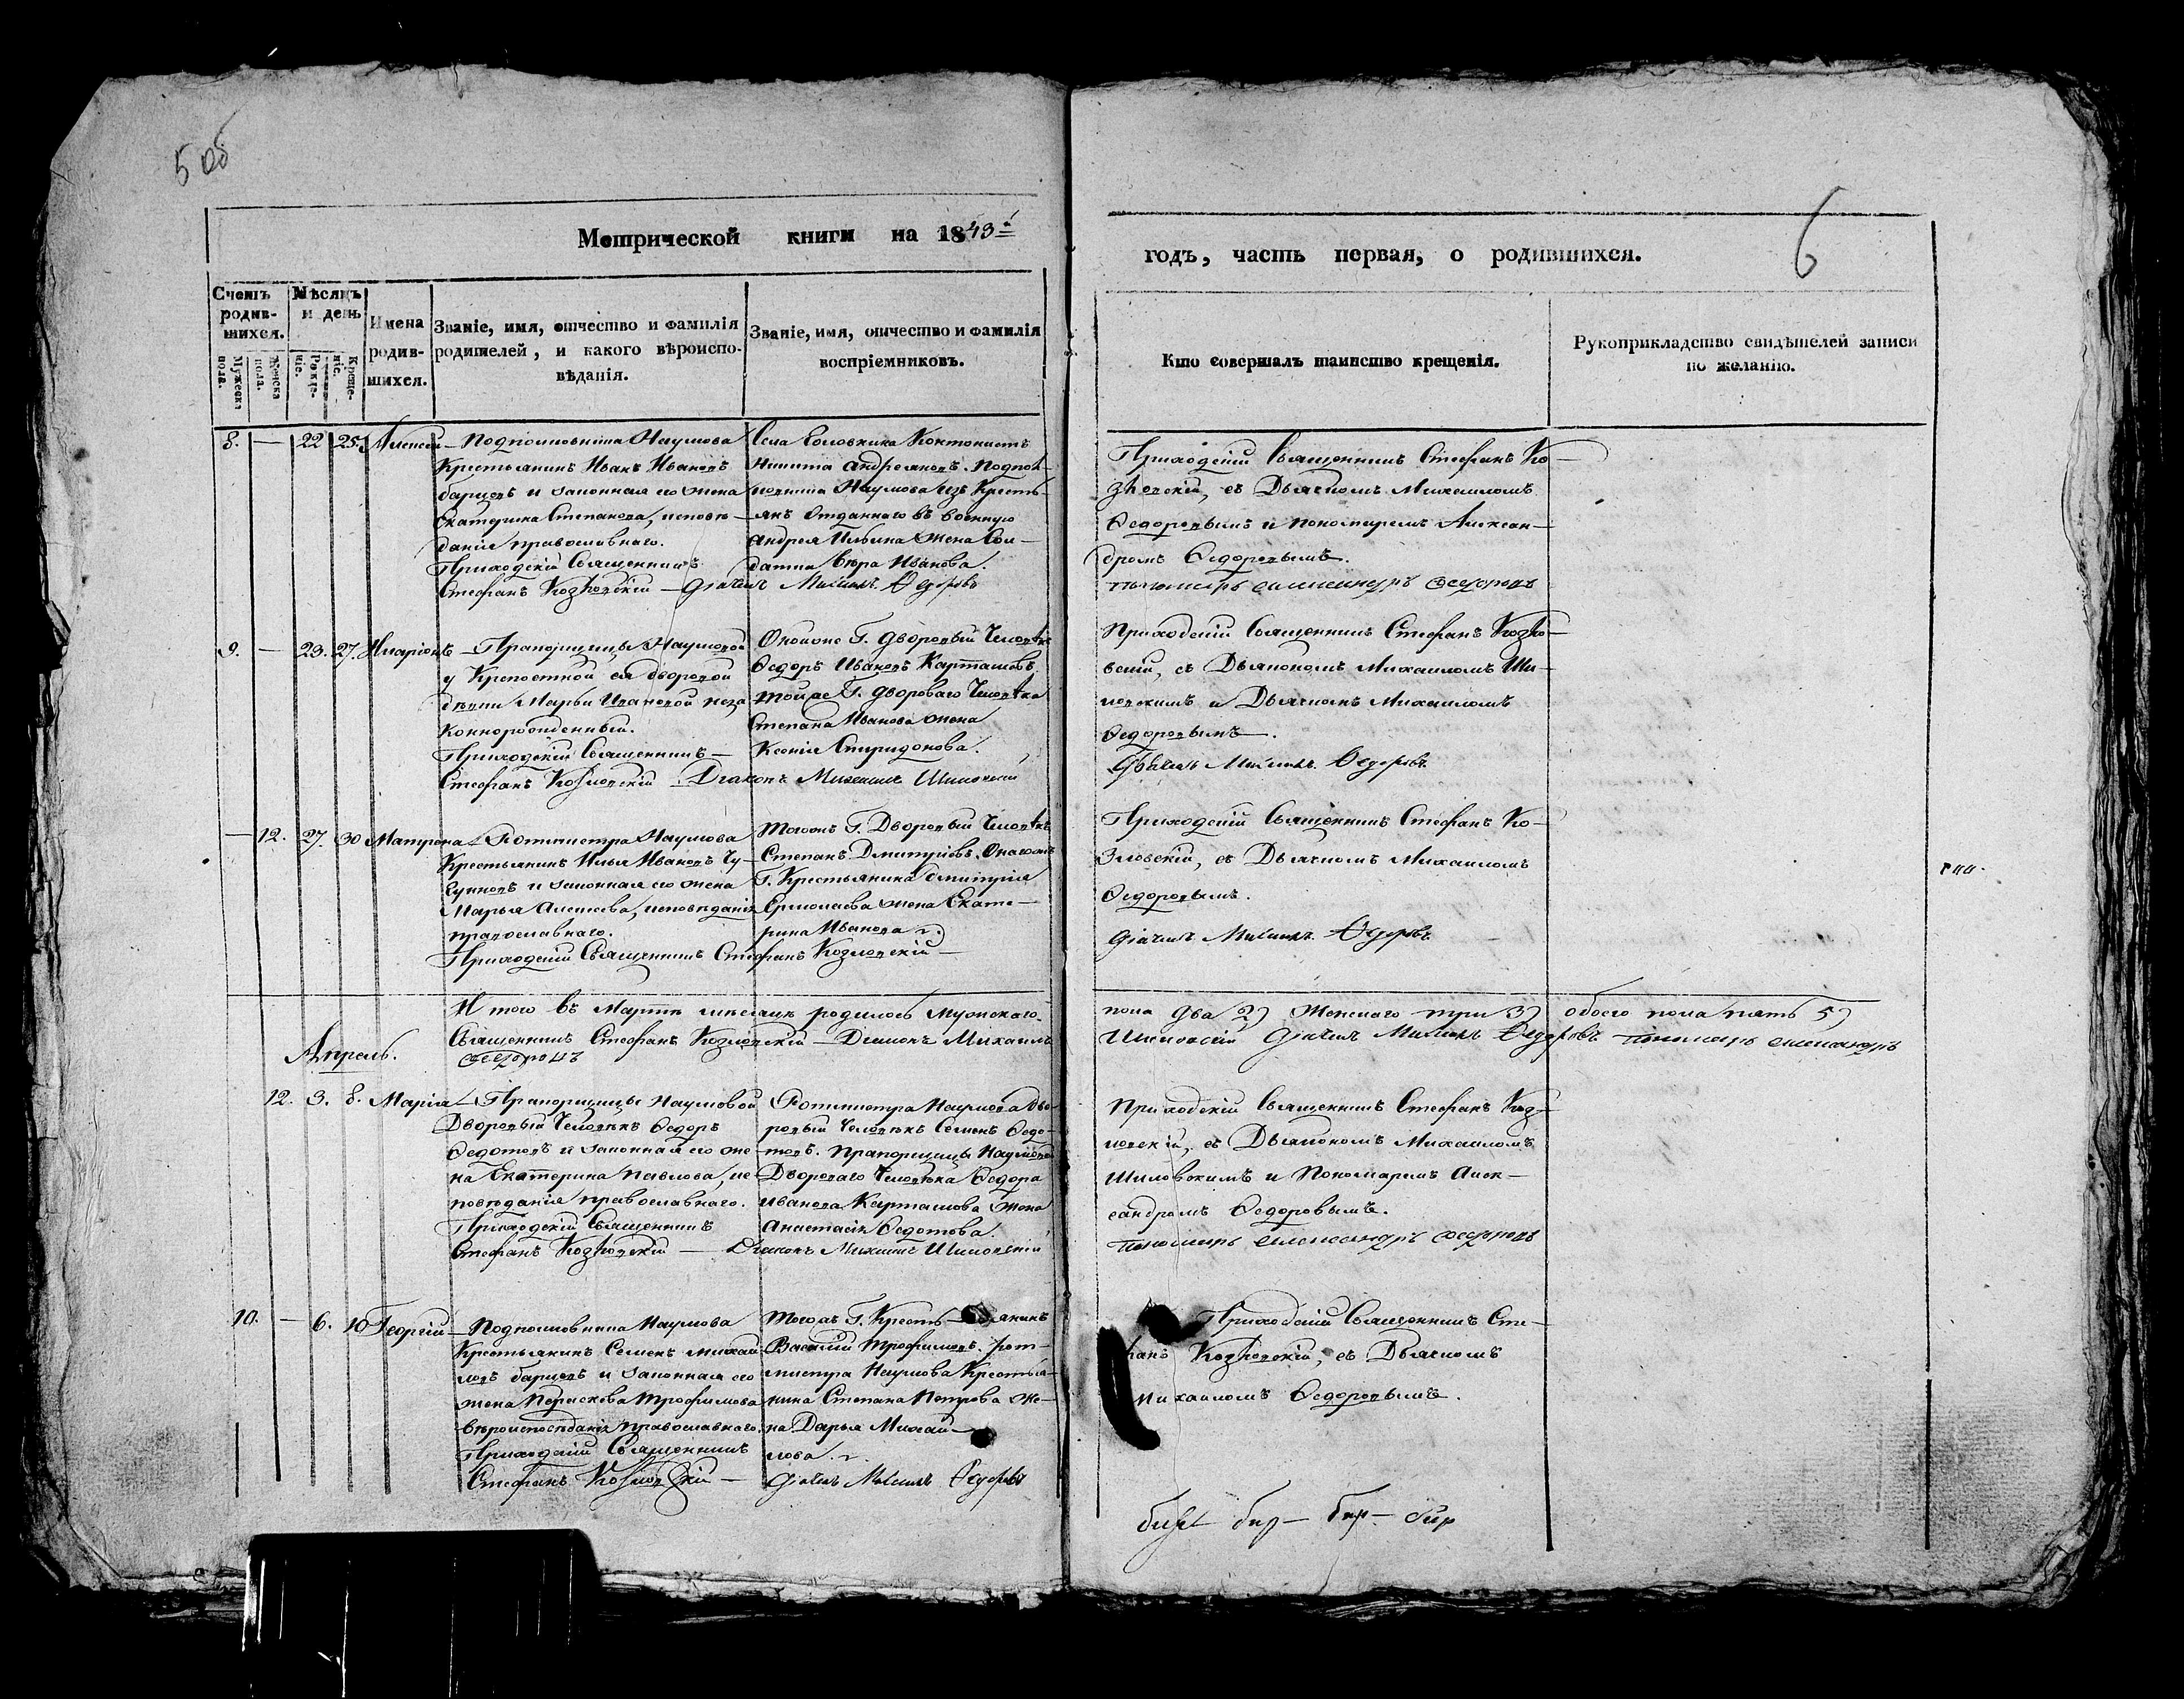 5 об
6
Метрической книги на 1843й
годъ, часть первая, о родившихся.
Счетъ родив-
шихся.
Мужеска пола.
Женска пола.
Мѣсяцъ и день
Рожде-
ніе.
Креще-
ніе.
Имена
родив-
шихся.
Званіе, имя, отчество и фамилія
родителей, и какого вѣроиспо-
вѣданія.
Званіе, имя, отчество и фамилія
воспріемниковъ.
Кто совершалъ таинство крещенія.
Рукоприкладство свидѣтелей записи
по желанію.
8. — 22 25. Алексей — Подполковника Наумова
Крестьянинъ Иванъ Ивановъ
барцовъ и законная его жена
Екатерина Степанова, исповѣ-
данія православнаго.
Приходскій Священникъ
Стефанъ Козловскій — Дьячекъ Михаилъ Федоровъ
Села Головкина Кантонистъ
Никита Андреяновъ. Подпол-
ковника Наумова изъ Кресть-
янъ Отданнаго въ военную
Андрея Ильина жена Сол-
датка Вѣра Иванова.
Приходскій Священникъ Стефанъ Ко-
зловскій, съ Дьячкомъ Михаиломъ
Федоровымъ и пономаремъ Алексан-
дромъ Федоровымъ.
пономарь александръ Федоровъ
9. — 23. 27. Иларіонъ — Прапорщицы Наумовой
у Крепостной ея дворовой
дѣвки Марьи Ивановой неза
коннорожденный.
Приходскій Священникъ —
Стефанъ Козловскій — Діаконъ Михаилъ Шиловскій
Онойже Г. дворовый Человѣкъ
Федоръ Ивановъ Карташовъ.
тойже Г. дворового Человѣка
Степана Иванова жена
Ксенія Спиридонова.
Приходскій Священникъ Стефанъ Козло-
вскій, съ Дьякономъ Михаиломъ Ши-
ловскимъ и Дьячкомъ Михаиломъ
Федоровымъ.
Дьячекъ Михаилъ Федоровъ
— 12. 27. 30 Матрена — Ротмистра Наумова
Крестьянинъ Илья Ивановъ Чу-
гуновъ и законная его жена
Марья Алексеева, исповѣданія
православнаго.
Приходскій Священникъ Стефанъ Козловскій —
Тогожъ Г. Дворовый Человѣкъ
Степанъ Дмитріевъ. Онагожъ
Г. Крестьянина Дмитрія
Ермолаева жена Екате-
рина Иванова
Приходскій Священникъ Стефанъ Ко-
зловскій, съ Дьячкомъ Михаиломъ
Федоровымъ.
Дьячекъ Михаилъ Федоровъ
Итого въ Мартѣ мѣсяцѣ родилось Мужскаго
пола два 2) Женскаго три 3) обоего пола пять 5)
Священникъ Стефанъ Козловскій — Діаконъ Михаилъ
Шиловскій Дьячекъ Михаилъ Федоровъ пономарь александръ
Федоровъ
Апрель.
12. 3. 8. Марія — Прапорщицы Наумовой
Дворовый Человѣкъ Федоръ
Федотовъ и законная его же-
на Екатерина Павлова, ис-
повѣданія православнаго.
Приходскій Священникъ
Стефанъ Козловскій — Діаконъ Михаилъ Шиловскій
Ротмистра Наумова Дво-
ровый Человѣкъ Семенъ Федо-
товъ. Прапорщицы Наумовой
Двороваго Человѣка Федора
Иванова Карташова жена
Анастасія Федотова.
Приходскій Священникъ Стефанъ Коз-
ловскій, съ Дьякономъ Михаиломъ
Шиловскимъ и Пономаремъ Алек-
сандромъ Федоровымъ.
пономарь александръ Федоровъ
10. — 6. 10 Георгій — Подполковника Наумова
Крестьянинъ Семенъ Михай-
ловъ барцовъ и законная его
жена Параскева Трофимова
вѣроисповѣданія православнаго.
Приходскій Священникъ
Стефанъ Козловскій —
Тогожъ Г. Кресть-янинъ
Василій Трофимовъ. рот-
мистра Наумова Крестья-
нина Степана Петрова же-
на Дарья Михай-
лова.
Дьячекъ Михаилъ Федоровъ
Приходскій Священникъ Сте-
фанъ Козловскій, съ Дьячкомъ
Михаиломъ Федоровымъ.